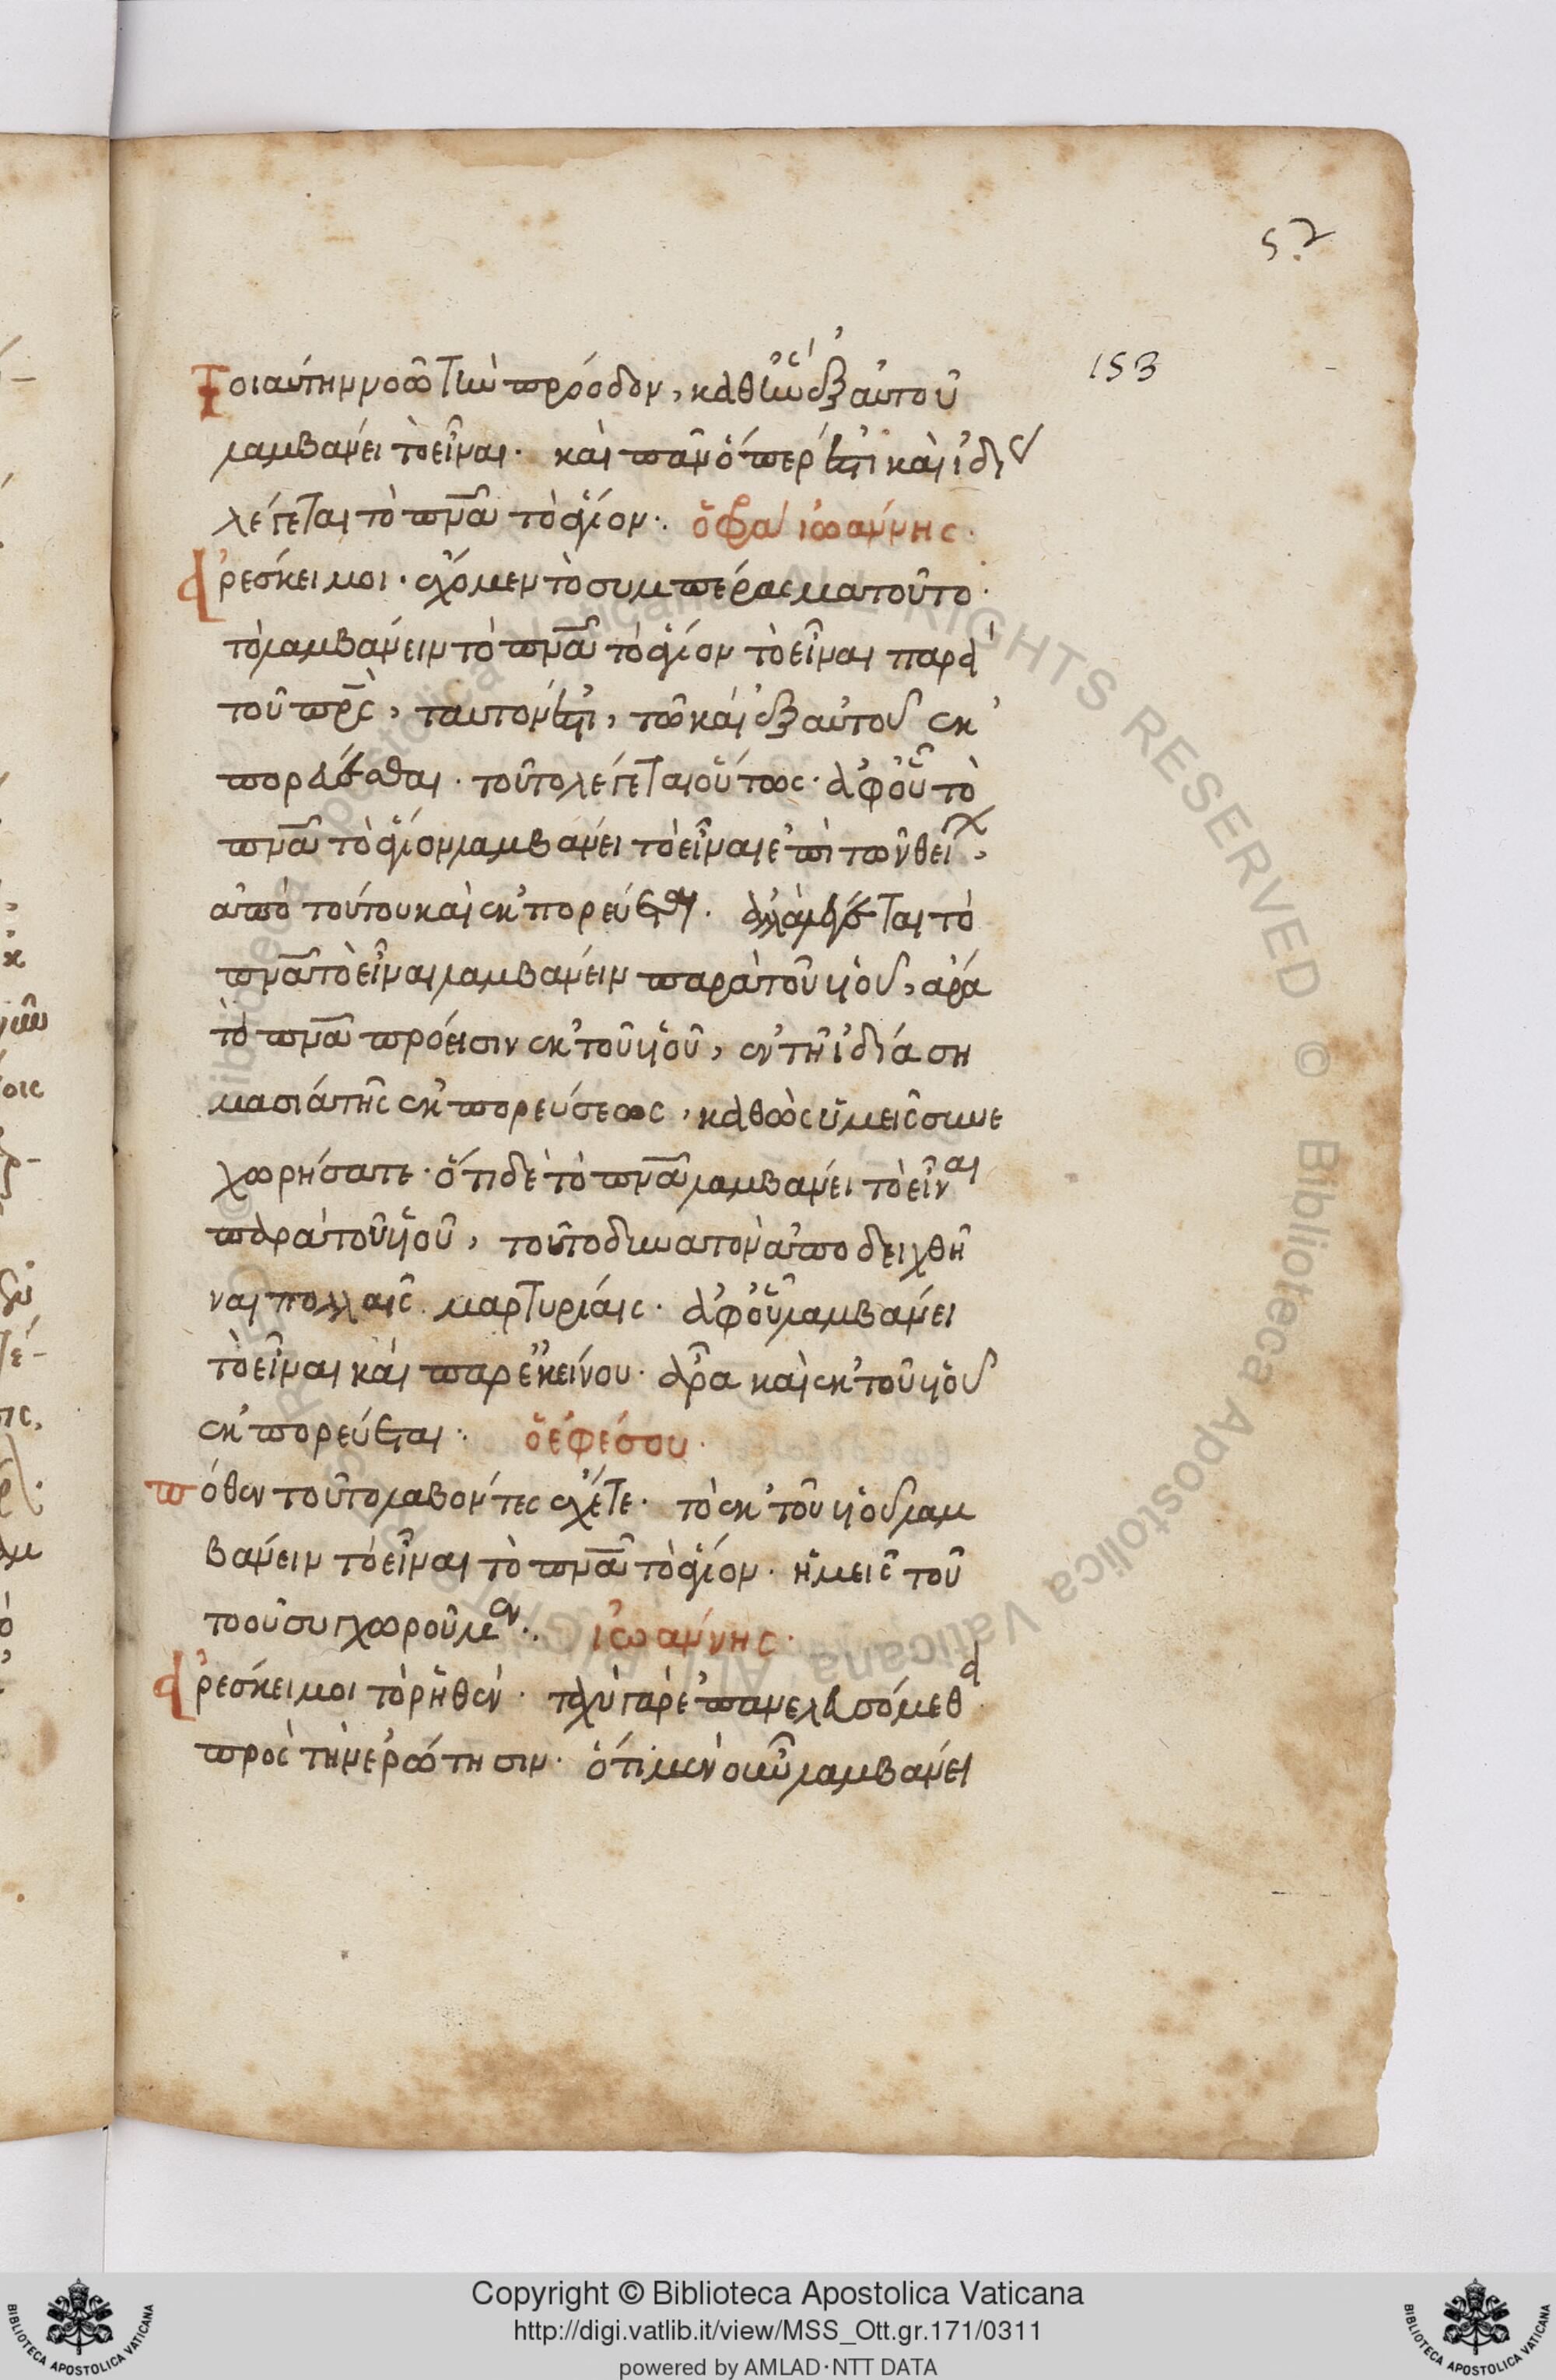 52
153
Τοιαύτην νοῶ τὴν πρόοδον, καθ' ἣν ἐξ αὐτοῦ
λαμβάνει τὸ εἶναι. καὶ πᾶν ὅπερ ἐστὶ καὶ ἰδί
λέγεται τὸ πνᾶ τὸ ἅγιον. ὁ φρα ἰωάννης.
ἀρέσκει μοι. ἔχομεν τὸ συμπέρασμα τοῦτο.
τὸ λαμβάνειν τὸ πνᾶ τὸ ἅγιον τὸ εἶναι παρὰ
τοῦ πρς, ταυτόν ἐστι, τῶ καὶ ἐξ αὐτοῦ ἐκ
πορεύεσθαι. τοῦτο λέγεται οὕτως. ἀφ' οὗ τὸ
πνᾶ τὸ ἅγιον λαμβάνει τὸ εἶναι ἐπὶ τῶν θεί,
ἀπὸ τούτου καὶ ἐκπορεύεται. ἀλλὰ λέγεται τὸ
πνᾶ τὸ εἶναι λαμβάνειν παρὰ τοῦ υἱοῦ, ἄρα
τὸ πνᾶ πρόεισιν ἐκ τοῦ υἱοῦ, ἐν τῆ ἰδία ση
μασία τῆς ἐκπορεύσεως, καθὼς ὑμεῖς συνε
χωρήσατε. ὅτι δὲ τὸ πνᾶ λαμβάνει τὸ εἶναι
παρὰ τοῦ υἱοῦ, τοῦτο δυνατὸν ἀποδειχθῆ
ναι πολλαῖς μαρτυρίαις. ἀφ' οὗ λαμβάνει
τὸ εἶναι καὶ παρ' ἐκείνου. ἄρα καὶ ἐκ τοῦ υἱοῦ
ἐκπορεύεται. ὁ ἐφέσου.
πόθεν τοῦτο λαβόντες ἔχετε. τὸ ἐκ τοῦ υἱοῦ λαμ
βάνειν τὸ εἶναι τὸ πνᾶ τὸ ἅγιον. ἡμεῖς τοῦ
το οὐ συγχωροῦμεν. ἰωάννης.
ἀρέσκει μοι τὸ ῥηθέν. πάλιν γὰρ ἐπανελευσόμεθα
πρὸς τὴν ἐρώτησιν. ὅτι μὲν οὖν λαμβάνει
Copyright © Biblioteca Apostolica Vaticana
http://digi.vatlib.it/view/MSS_Ott.gr.171/0311
powered by AMLAD·NTT DATA